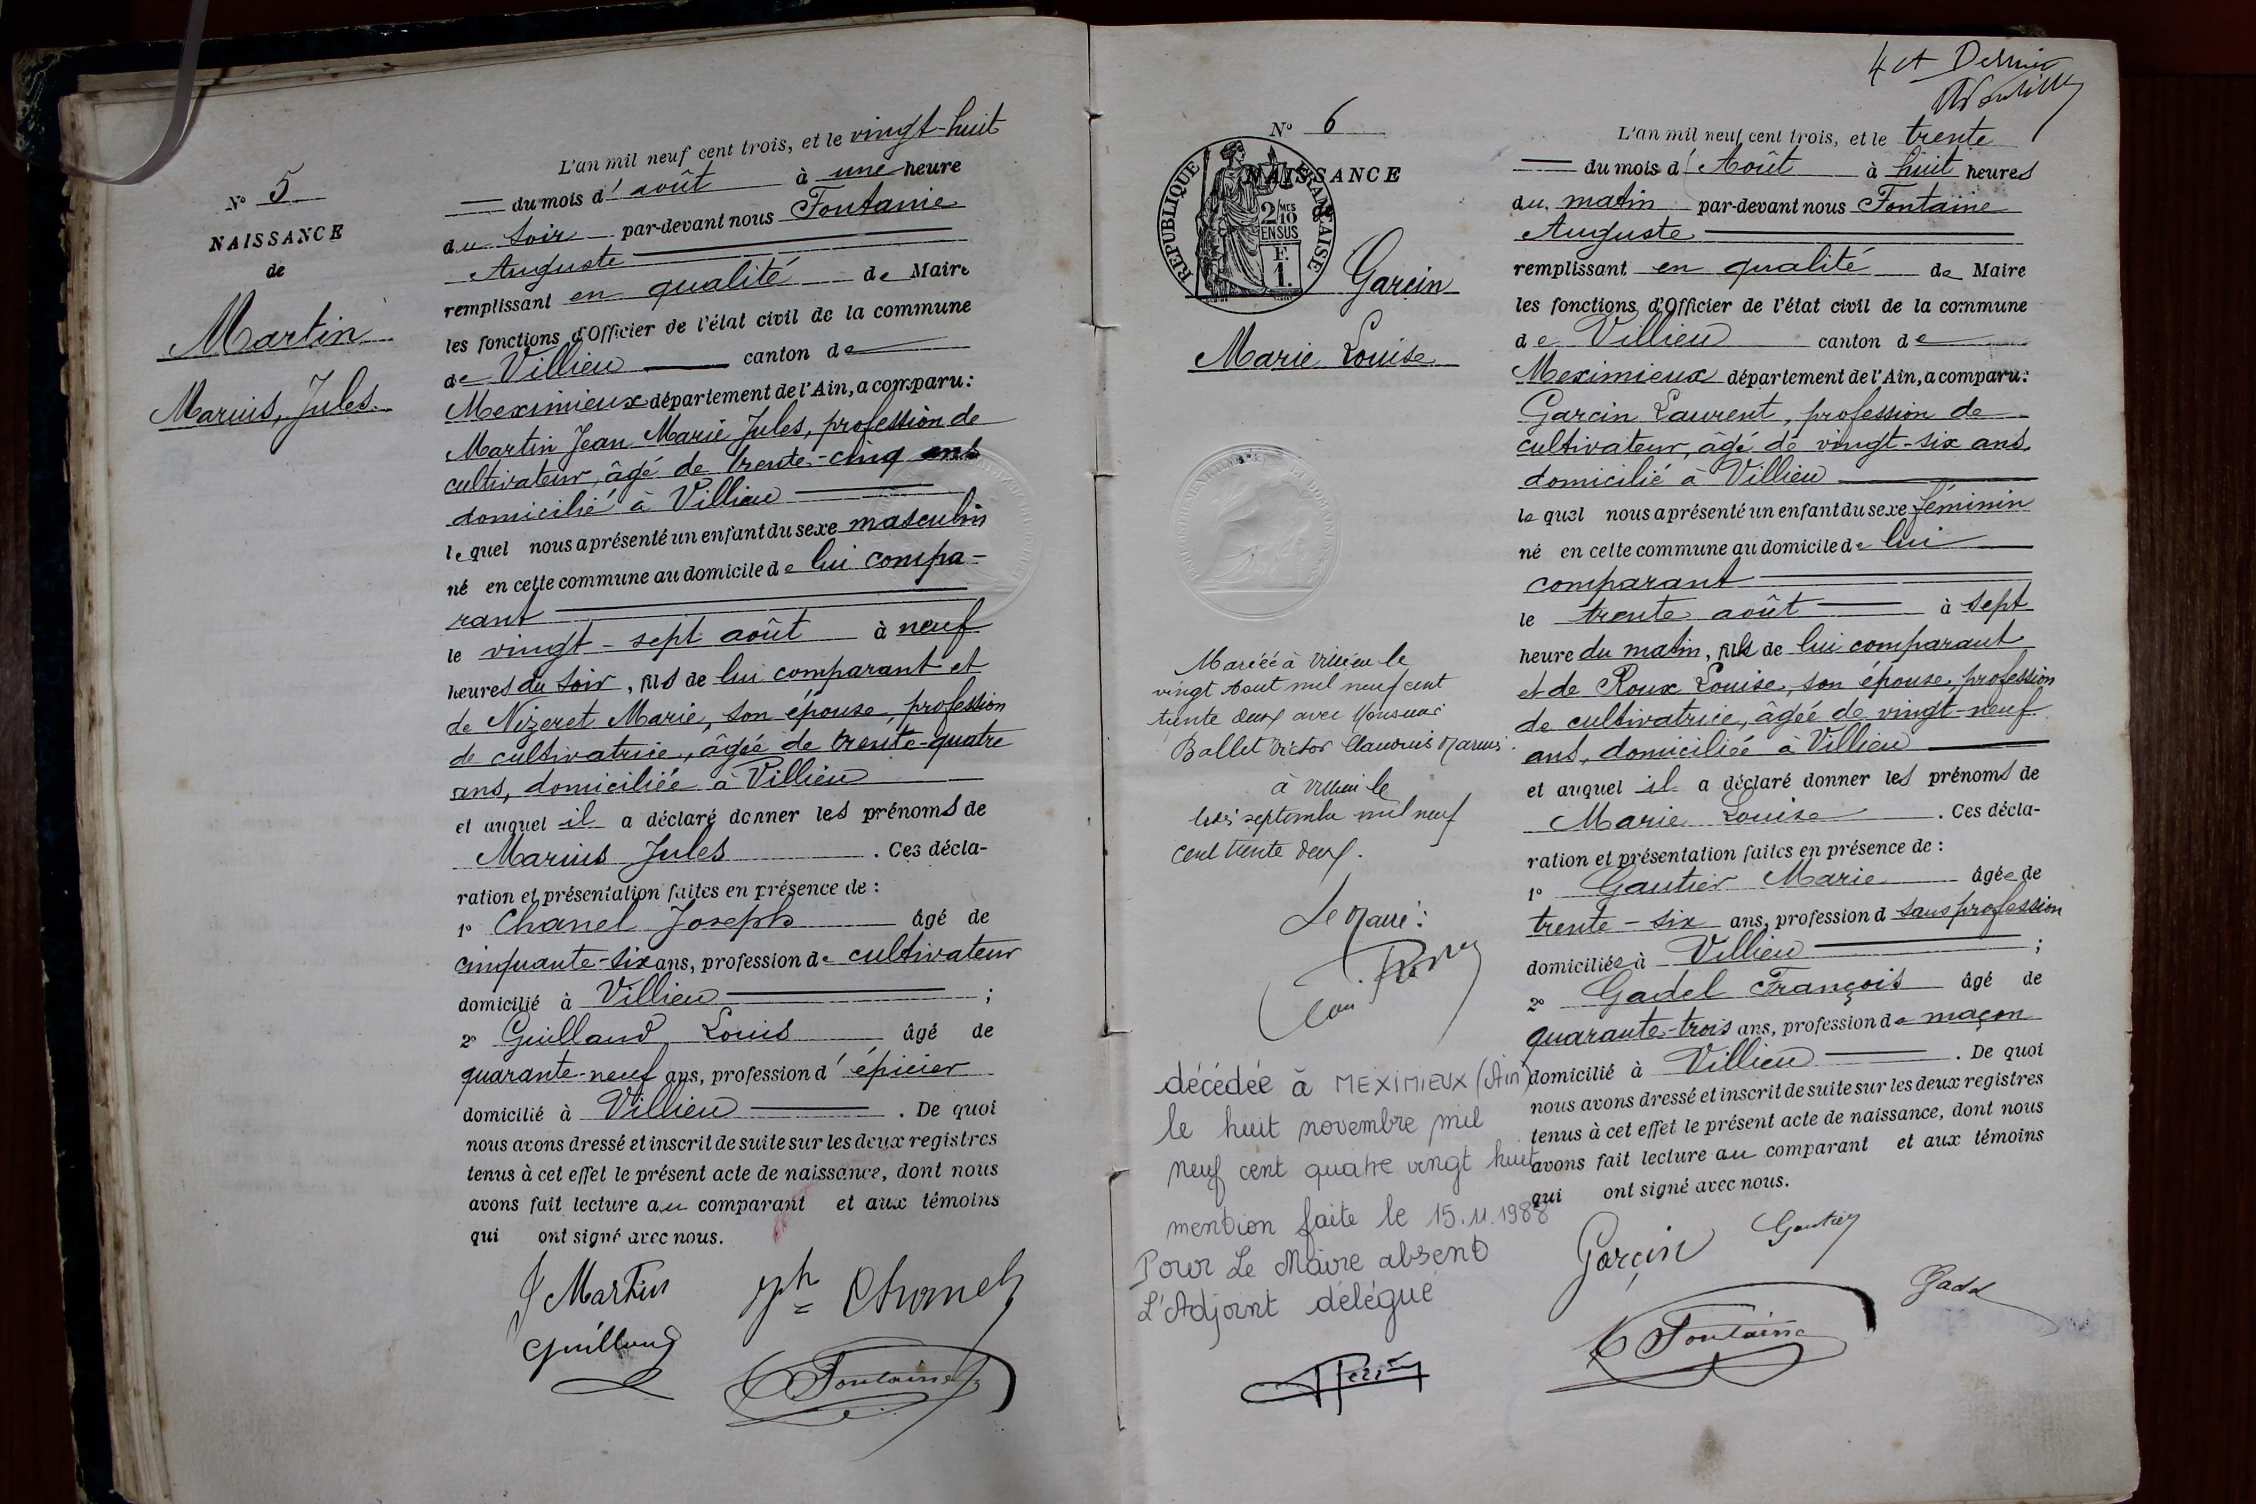 N° 5
NAISSANCE
de
Martin
Marius, Jules.
L'an mil neuf cent trois, et le vingt-huit
du mois d'août à une heure
du soir par-devant nous Fontaine
Auguste
remplissant en qualité de Maire
les fonctions d'Officier de l'état civil de la commune
de Villieu canton de
Meximieux département de l'Ain, a comparu:
Martin Jean Marie Jules, profession de
cultivateur, âgé de trente-cinq ans
domicilié à Villieu
lequel nous a présenté un enfant du sexe masculin
né en cette commune au domicile de lui compa-
rant
le vingt-sept août à neuf
heures du soir, fils de lui comparant et
de Nizeret Marie, son épouse, profession
de cultivatrice, âgée de trente-quatre
ans, domiciliée à Villieu
et auquel il a déclaré donner les prénoms de
Marius Jules. Ces décla-
ration et présentation faites en présence de :
1° Chanel Joseph âgé de
cinquante-six ans, profession de cultivateur
domicilié à Villieu ;
2° Guilland Louis âgé de
quarante-neuf ans, profession d'épicier
domicilié à Villieu. De quoi
nous avons dressé et inscrit de suite sur les deux registres
tenus à cet effet le présent acte de naissance, dont nous
avons fait lecture au comparant et aux témoins
qui ont signé avec nous.
J Martin Jph Chanel
Guilland
Fontaine
4 et Dernier
N° 6
NAISSANCE
de
REPUBLIQUE FRANÇAISE
2/10 MES
EN SUS
F.
1.
Garcin
Marie Louise
Mariée à Villieu le
vingt Aout mil neuf cent
trente deux avec Monsieur
Ballet Victor Claudius Marius.
à Villieu le
septembre mil neuf
cent trente deux.
Le Maire :
décédée à MEXIMIEUX (Ain)
le huit novembre mil
neuf cent quatre vingt huit
mention faite le 15.11.1988
Pour Le Maire absent
L'Adjoint délégué
L'an mil neuf cent trois, et le trente
du mois d'Août à huit heures
du matin par-devant nous Fontaine
Auguste
remplissant en qualité de Maire
les fonctions d'Officier de l'état civil de la commune
de Villieu canton de
Meximieux département de l'Ain, a comparu:
Garcin Laurent, profession de
cultivateur, âgé de vingt-six ans,
domicilié à Villieu
lequel nous a présenté un enfant du sexe féminin
né en cette commune au domicile de lui
comparant
le trente août à sept
heure du matin, fils de lui comparant
et de Roux Louise, son épouse, profession
de cultivatrice, âgée de vingt-neuf
ans, domiciliée à Villieu
et auquel il a déclaré donner les prénoms de
Marie Louise. Ces décla-
ration et présentation faites en présence de :
1° Gautier Marie âgée de
trente-six ans, profession d sans profession
domiciliée à Villieu ;
2° Gadel François âgé de
quarante-trois ans, profession de maçon
domicilié à Villieu. De quoi
nous avons dressé et inscrit de suite sur les deux registres
tenus à cet effet le présent acte de naissance, dont nous
avons fait lecture au comparant et aux témoins
qui ont signé avec nous.
Garcin Gautier
Gadel
Fontaine